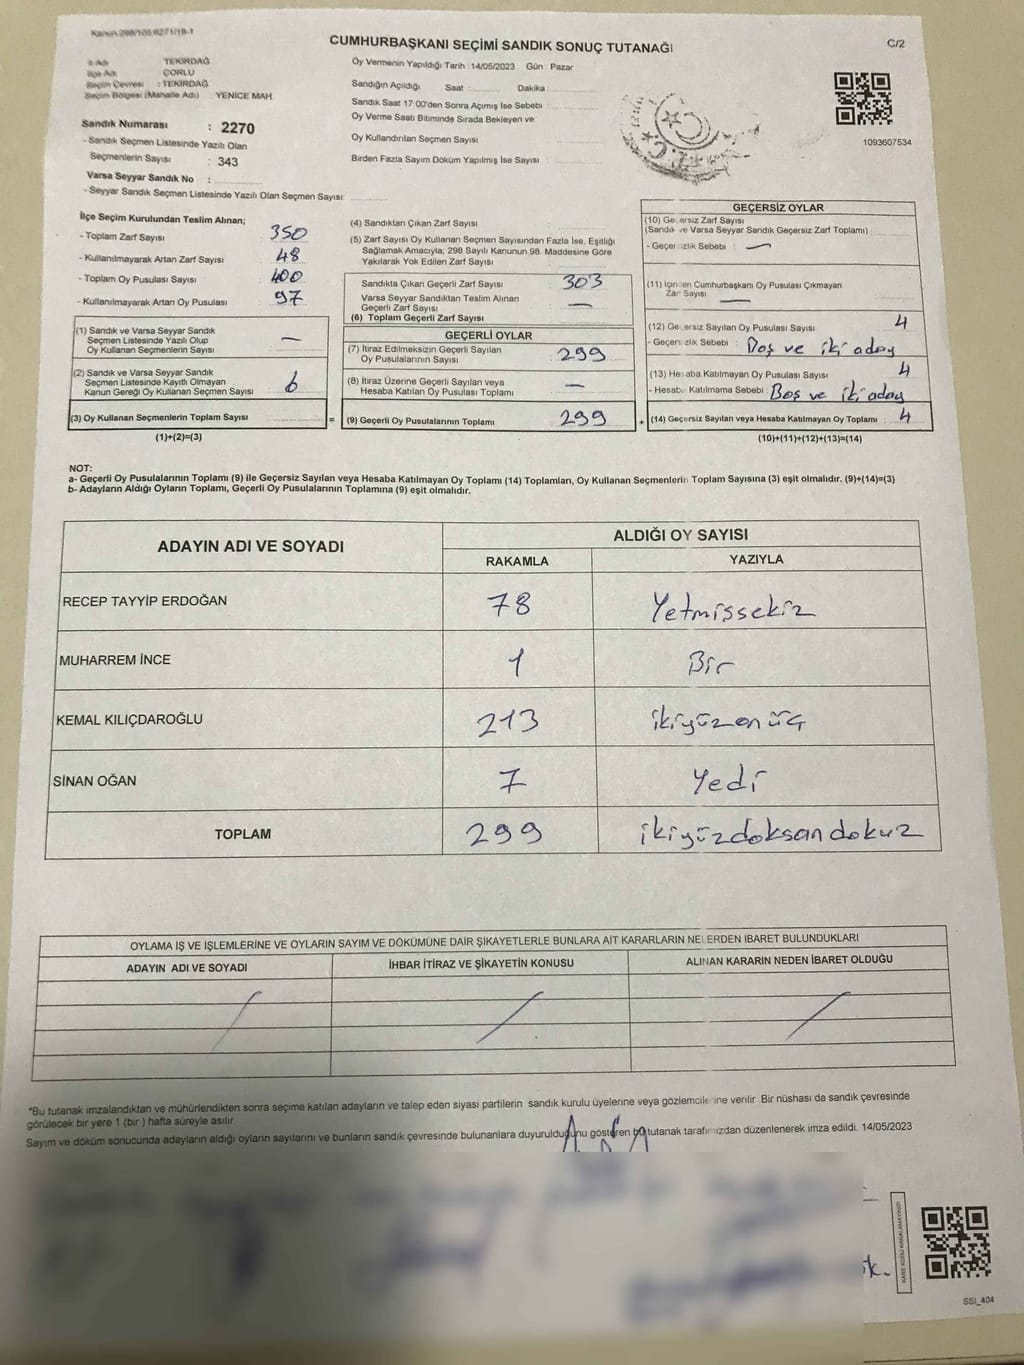 Kanun 298/105 6271/18-1
CUMHURBAŞKANI SEÇİMİ SANDIK SONUÇ TUTANAĞI
C/2
İl Adı TEKİRDAĞ
İlçe Adı ÇORLU
Seçim Çevresi : TEKİRDAĞ
Seçim Bölgesi (Mahalle Adı) YENİCE MAH
Sandık Numarası : 2270
- Sandık Seçmen Listesinde Yazılı Olan
Seçmenlerin Sayısı : 343
Varsa Seyyar Sandık No :
- Seyyar Sandık Seçmen Listesinde Yazılı Olan Seçmen Sayısı:
Oy Vermenin Yapıldığı Tarih : 14/05/2023 Gün : Pazar
Sandığın Açıldığı Saat : Dakika :
Sandık Saat 17:00'den Sonra Açımış İse Sebebi :
Oy Verme Saati Bitiminde Sırada Bekleyen ve
Oy Kullandırılan Seçmen Sayısı :
Birden Fazla Sayım Döküm Yapılmış İse Sayısı :
T.C.
1093607534
İlçe Seçim Kurulundan Teslim Alınan;
- Toplam Zarf Sayısı : 350
- Kullanılmayarak Artan Zarf Sayısı : 48
- Toplam Oy Pusulası Sayısı : 400
- Kullanılmayarak Artan Oy Pusulası : 97
(1) Sandık ve Varsa Seyyar Sandık
Seçmen Listesinde Yazılı Olup
Oy Kullanan Seçmenlerin Sayısı : —
(2) Sandık ve Varsa Seyyar Sandık
Seçmen Listesinde Kayıtlı Olmayan
Kanun Gereği Oy Kullanan Seçmen Sayısı : 6
(3) Oy Kullanan Seçmenlerin Toplam Sayısı :
(1)+(2)=(3)
(4) Sandıktan Çıkan Zarf Sayısı :
(5) Zarf Sayısı Oy Kullanan Seçmen Sayısından Fazla İse, Eşitliği
Sağlamak Amacıyla; 298 Sayılı Kanunun 98. Maddesine Göre
Yakılarak Yok Edilen Zarf Sayısı :
Sandıkta Çıkan Geçerli Zarf Sayısı : 303
Varsa Seyyar Sandıktan Teslim Alınan
Geçerli Zarf Sayısı : —
(6) Toplam Geçerli Zarf Sayısı :
GEÇERLİ OYLAR
(7) İtiraz Edilmeksizin Geçerli Sayılan
Oy Pusulalarının Sayısı : 299
(8) İtiraz Üzerine Geçerli Sayılan veya
Hesaba Katılan Oy Pusulası Toplamı : —
= (9) Geçerli Oy Pusulalarının Toplamı : 299
GEÇERSİZ OYLAR
(10) Geçersiz Zarf Sayısı
(Sandık ve Varsa Seyyar Sandık Geçersiz Zarf Toplamı) :
- Geçersizlik Sebebi : —
(11) İçinden Cumhurbaşkanı Oy Pusulası Çıkmayan
Zarf Sayısı : —
(12) Geçersiz Sayılan Oy Pusulası Sayısı : 4
- Geçersizlik Sebebi : Boş ve iki aday
(13) Hesaba Katılmayan Oy Pusulası Sayısı : 4
- Hesaba Katılmama Sebebi : Boş ve iki aday
+ (14) Geçersiz Sayılan veya Hesaba Katılmayan Oy Toplamı : 4
(10)+(11)+(12)+(13)=(14)
NOT:
a- Geçerli Oy Pusulalarının Toplamı (9) ile Geçersiz Sayılan veya Hesaba Katılmayan Oy Toplamı (14) Toplamları, Oy Kullanan Seçmenlerin Toplam Sayısına (3) eşit olmalıdır. (9)+(14)=(3)
b- Adayların Aldığı Oyların Toplamı, Geçerli Oy Pusulalarının Toplamına (9) eşit olmalıdır.
ADAYIN ADI VE SOYADI ALDIĞI OY SAYISI
RAKAMLA YAZIYLA
RECEP TAYYİP ERDOĞAN 78 Yetmissekiz
MUHARREM İNCE 1 Bir
KEMAL KILIÇDAROĞLU 213 ikiyüzonüç
SİNAN OĞAN 7 Yedi
TOPLAM 299 ikiyüzdoksandokuz
OYLAMA İŞ VE İŞLEMLERİNE VE OYLARIN SAYIM VE DÖKÜMÜNE DAİR ŞİKAYETLERLE BUNLARA AİT KARARLARIN NELERDEN İBARET BULUNDUKLARI
ADAYIN ADI VE SOYADI İHBAR İTİRAZ VE ŞİKAYETİN KONUSU ALINAN KARARIN NEDEN İBARET OLDUĞU
*Bu tutanak imzalandıktan ve mühürlendikten sonra seçime katılan adayların ve talep eden siyasi partilerin sandık kurulu üyelerine veya gözlemcilerine verilir. Bir nüshası da sandık çevresinde
görülecek bir yere 1 (bir ) hafta süreyle asılır.
Sayım ve döküm sonucunda adayların aldığı oyların sayılarını ve bunların sandık çevresinde bulunanlara duyurulduğunu gösteren bu tutanak tarafımızdan düzenlenerek imza edildi. 14/05/2023
KARE KODU KARALAMAYINIZ!
SSI_404